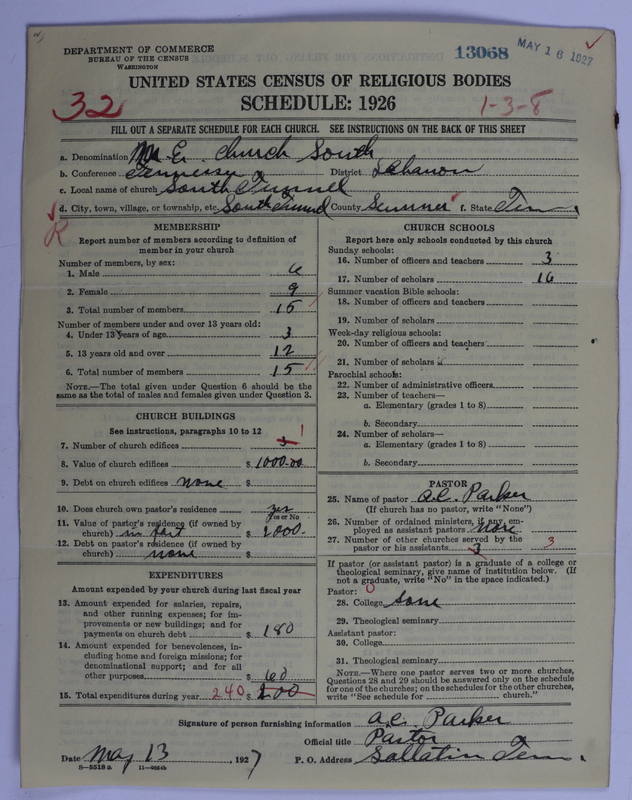 DEPARTMENT OF COMMERCE
BUREAU OF THE CENSUS
WASHINGTON
13068
MAY 16 1927
UNITED STATES CENSUS OF RELIGIOUS BODIES
SCHEDULE: 1926
32
1-3-8
FILL OUT A SEPARATE SCHEDULE FOR EACH CHURCH. SEE INSTRUCTIONS ON THE BACK OF THIS SHEET
a. Denomination M. E. Church South
b. Conference Tennessee District Lebanon
c. Local name of church South Tunnel
d. City, town, village, or township, etc. South Tunnel County Sumner f. State Tenn
R
MEMBERSHIP
Report number of members according to definition of
member in your church
Number of members, by sex:
1. Male 6
2. Female 9
3. Total number of members 15
Number of members under and over 13 years old:
4. Under 13 years of age 3
5. 13 years old and over 12
6. Total number of members 15
NOTE.—The total given under Question 6 should be the
same as the total of males and females given under Question 3.
CHURCH BUILDINGS
See instructions, paragraphs 10 to 12
7. Number of church edifices 1
8. Value of church edifices $ 1000.00
9. Debt on church edifices none $
10. Does church own pastor's residence yes
Yes or No
11. Value of pastor's residence (if owned by
church) in part $ 2000.
12. Debt on pastor's residence (if owned by
church) none $
EXPENDITURES
Amount expended by your church during last fiscal year
13. Amount expended for salaries, repairs,
and other running expenses; for im-
provements or new buildings; and for
payments on church debt $ 180
14. Amount expended for benevolences, in-
cluding home and foreign missions; for
denominational support; and for all
other purposes $ 60
15. Total expenditures during year 240 $ 200
CHURCH SCHOOLS
Report here only schools conducted by this church
Sunday schools:
16. Number of officers and teachers 3
17. Number of scholars 16
Summer vacation Bible schools:
18. Number of officers and teachers
19. Number of scholars
Week-day religious schools:
20. Number of officers and teachers
21. Number of scholars
Parochial schools:
22. Number of administrative officers
23. Number of teachers—
a. Elementary (grades 1 to 8)
b. Secondary
24. Number of scholars—
a. Elementary (grades 1 to 8)
b. Secondary
PASTOR
25. Name of pastor A.C. Parker
(If church has no pastor, write "None")
26. Number of ordained ministers, if any, em-
ployed as assistant pastors None
27. Number of other churches served by the
pastor or his assistants 3 3
If pastor (or assistant pastor) is a graduate of a college or
theological seminary, give name of institution below. (If
not a graduate, write "No" in the space indicated.)
Pastor: 0
28. College
29. Theological seminary
Assistant pastor:
30. College
31. Theological seminary
NOTE.—Where one pastor serves two or more churches,
Questions 28 and 29 should be answered only on the schedule
for one of the churches; on the schedules for the other churches,
write "See schedule for church."
Signature of person furnishing information A.C. Parker
Official title Pastor
Date May 13, 1927 P. O. Address Gallatin Tenn.
8—5518 a